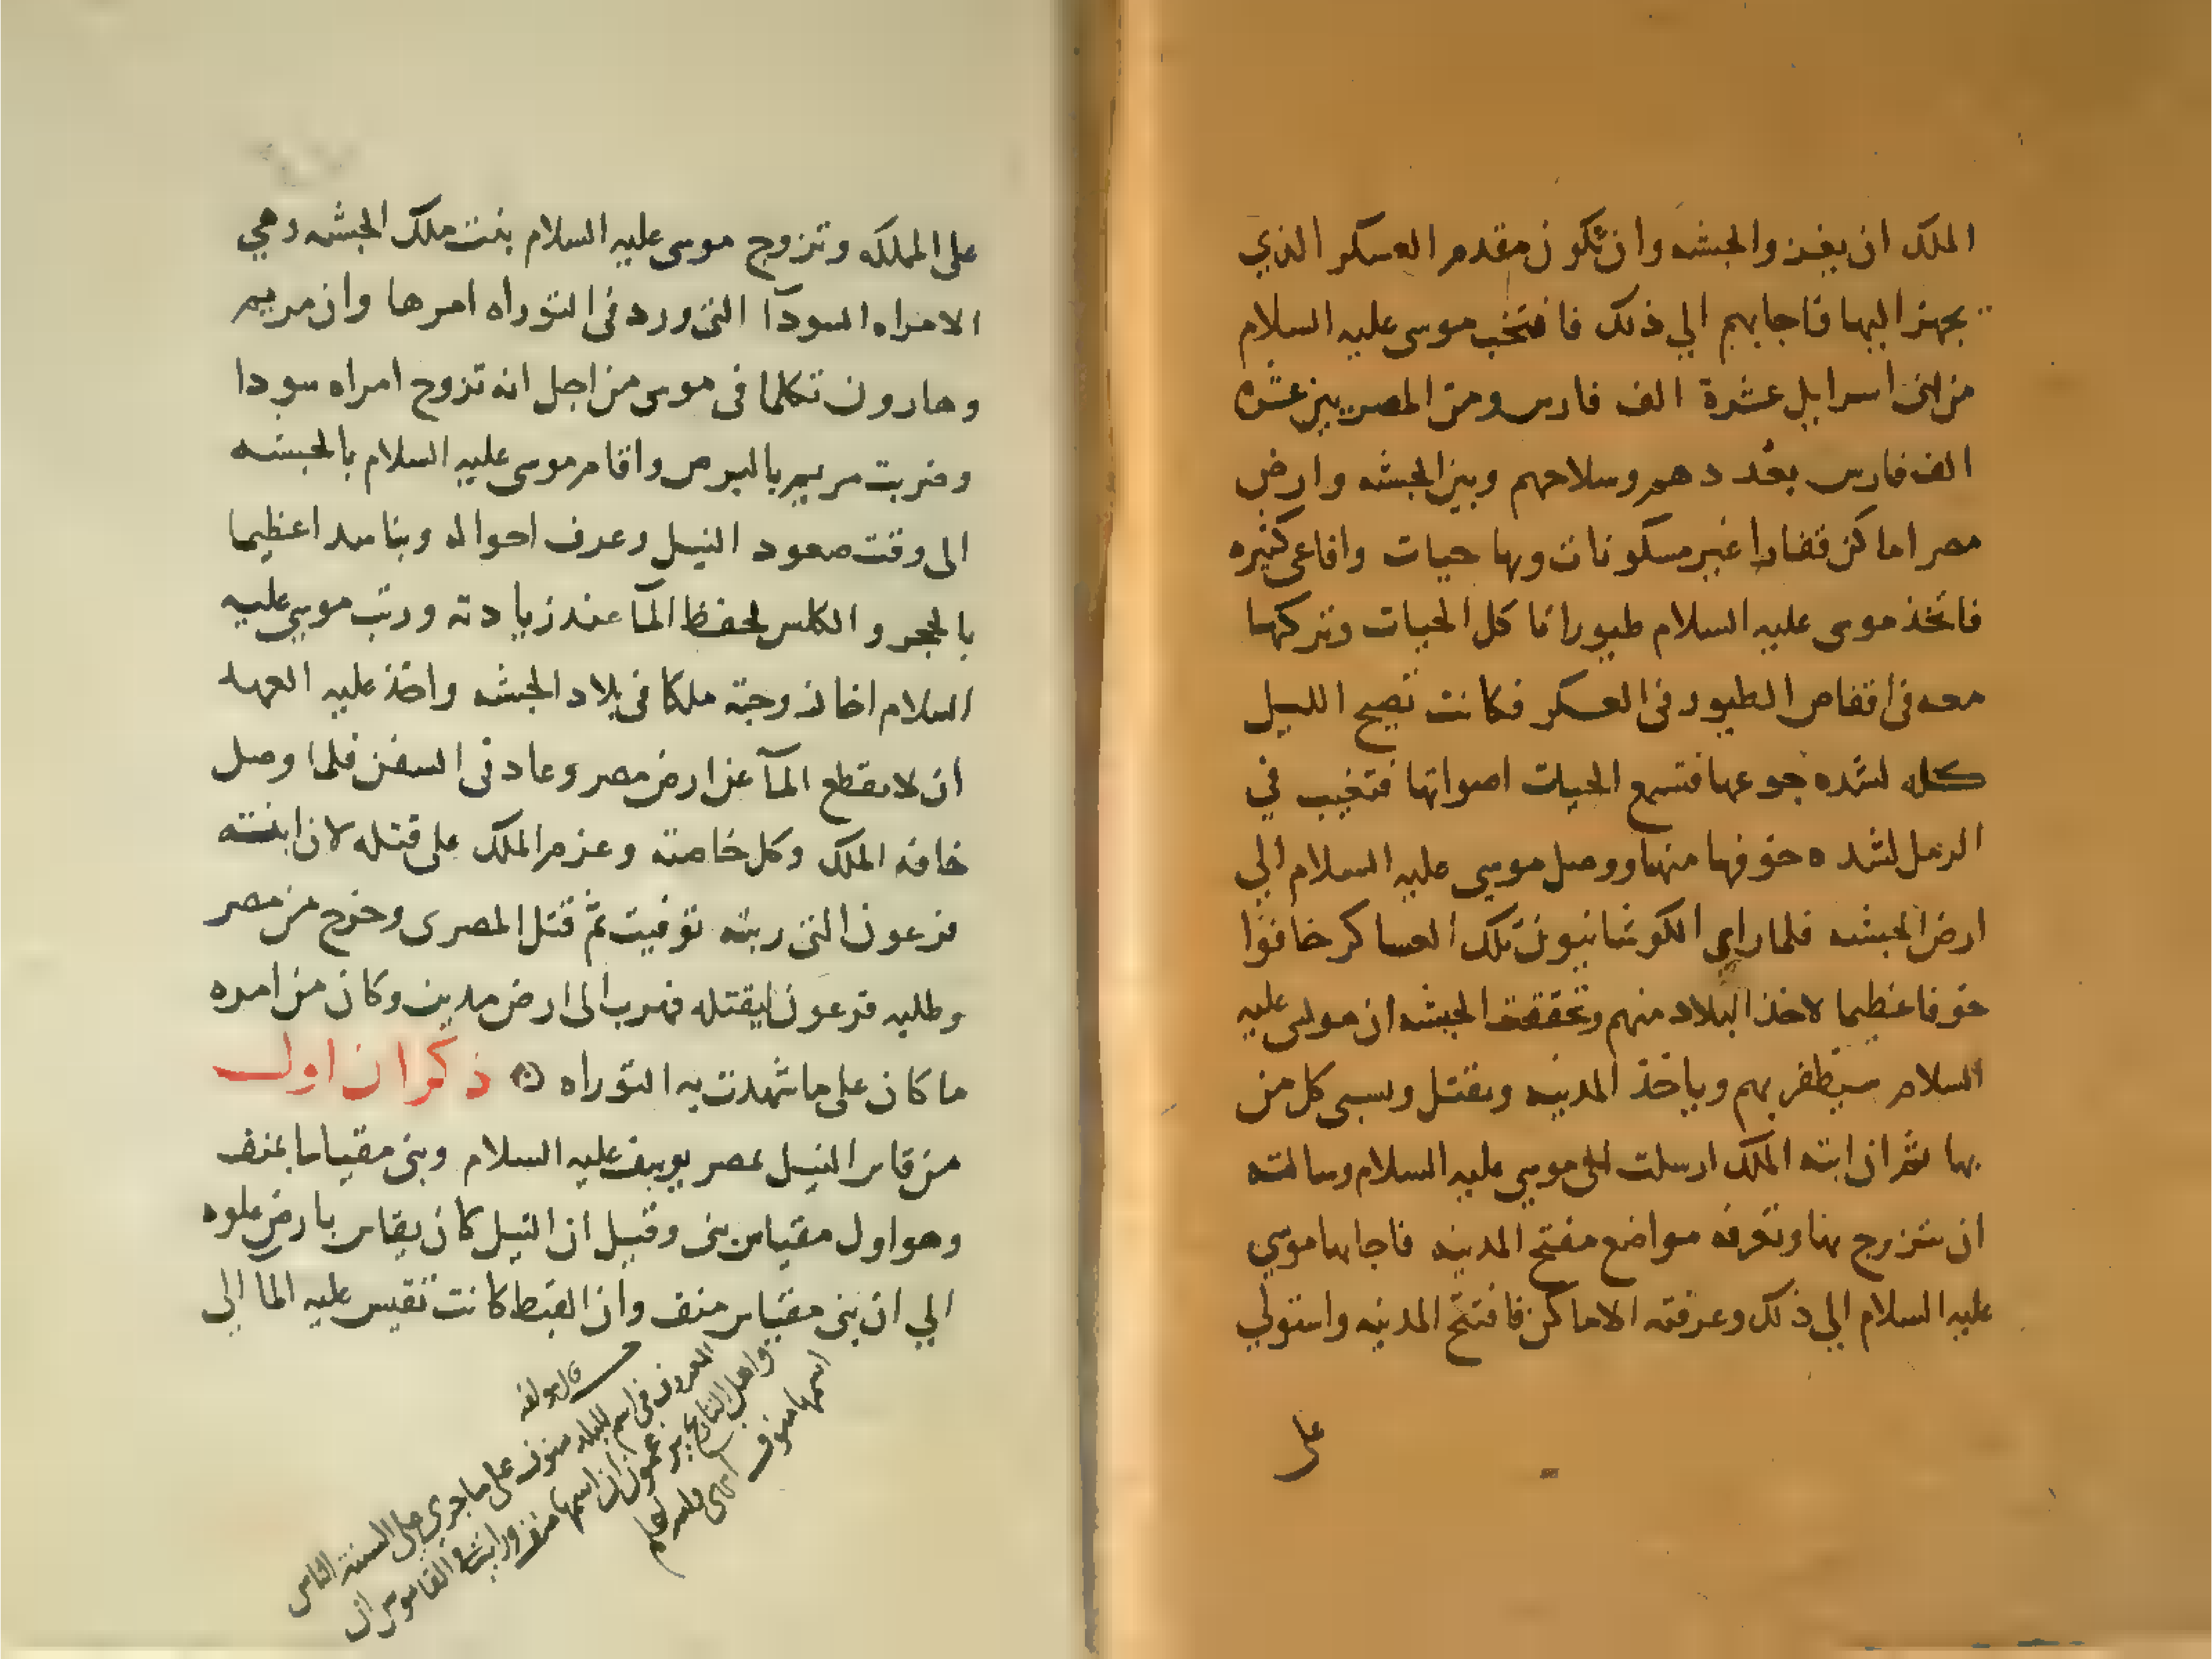 الملك ان يغزو الحبشه وان تكون مقدم العسكر الذي
يجهز اليها فاجابهم الي ذلك فانتخب موسى عليه السلام
من بنى اسرايل عشرة الف فارس ومن المصريين عشره
الف فارس بعددهم وسلاحهم وبين الحبشه وارض
مصر اماكن قفارا غير مسكونات وبها حيات وافاعى كثيره
فاتخذ موسى عليه السلام طيورا تاكل الحيات وتركها
معه فى اقفاص الطيور فى العسكر فكانت تصيح الليل
كله لشده جوعها فتسمع الحيات اصواتها فتغيب في
الرمل لشده خوفها منها ووصل موسي عليه السلام الي
ارض الحبشه فلما راي الكوشانيون تلك العساكر خافوا
خوفا عظيما لاخذ البلاد منهم وتحققت الحبشه ان موسى عليه
السلام سيظفر بهم وياخذ المدينه ويقتل ويسبى كل من
بها ثم ان ابنة الملك ارسلت الى موسي عليه السلام وسالته
ان يتزوج بها وتعرفه مواضع مفتح المدينه فاجابها موسي
عليه السلام الي ذلك وعرفته الاماكن فافتتح المدينه واستولي
على
على المملكه وتزوج موسى عليه السلام بنت ملك الحبشه وهي
الامراه السودآ التى ورد فى التوراه امرها وان مريم
وهارون تكلما فى موسى من اجل انه تزوج امراه سودا
وضربت مريم بالبرص واقام موسى عليه السلام بالحبشه
الى وقت صعود النيل وعرف احواله وبنا سدا عظيما
بالحجر والكلس لحفظ المآ عند زيادته ورتب موسي عليه
السلام اخا زوجته ملكا فى بلاد الحبشه واخذ عليه العهد
ان لا يقطع المآ عن ارض مصر وعاد فى السفن فلما وصل
خافه الملك وكل خاصته وعزم الملك على قتله لان ابنته
فرعون التى ربته توفيت ثم قتل المصرى وخرج من مصر
وطلبه فرعون ليقتله فهرب الى ارض مدين وكان من امره
ما كان على ما شهدت به التوراه ۞ ذكر ان اول
من قاس النيل بمصر يوسف عليه السلام وبنى مقياسا بمنف
وهو اول مقياس بنى وقيل ان النيل كان يقاس بارض علوه
الي ان بنى مقياس منف وان القبط كانت تقيس عليه الما الي
قال مولفه
المعروف فى اسم البلد منوف على ما جري على السنة الناس
واهل التاريخ يزعمون ان اسمها منف ورايت فى القاموس ان
اسمها منوف
انتهى فليعلم